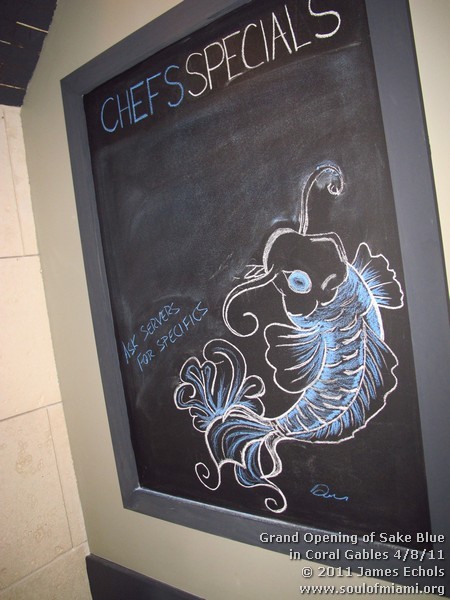 CHEFS SPECIALS
ASK SERVERS
FOR SPECIFICS
Grand Opening of Sake Blue
in Coral Gables 4/8/11
© 2011 James Echols
www.soulofmiami.org